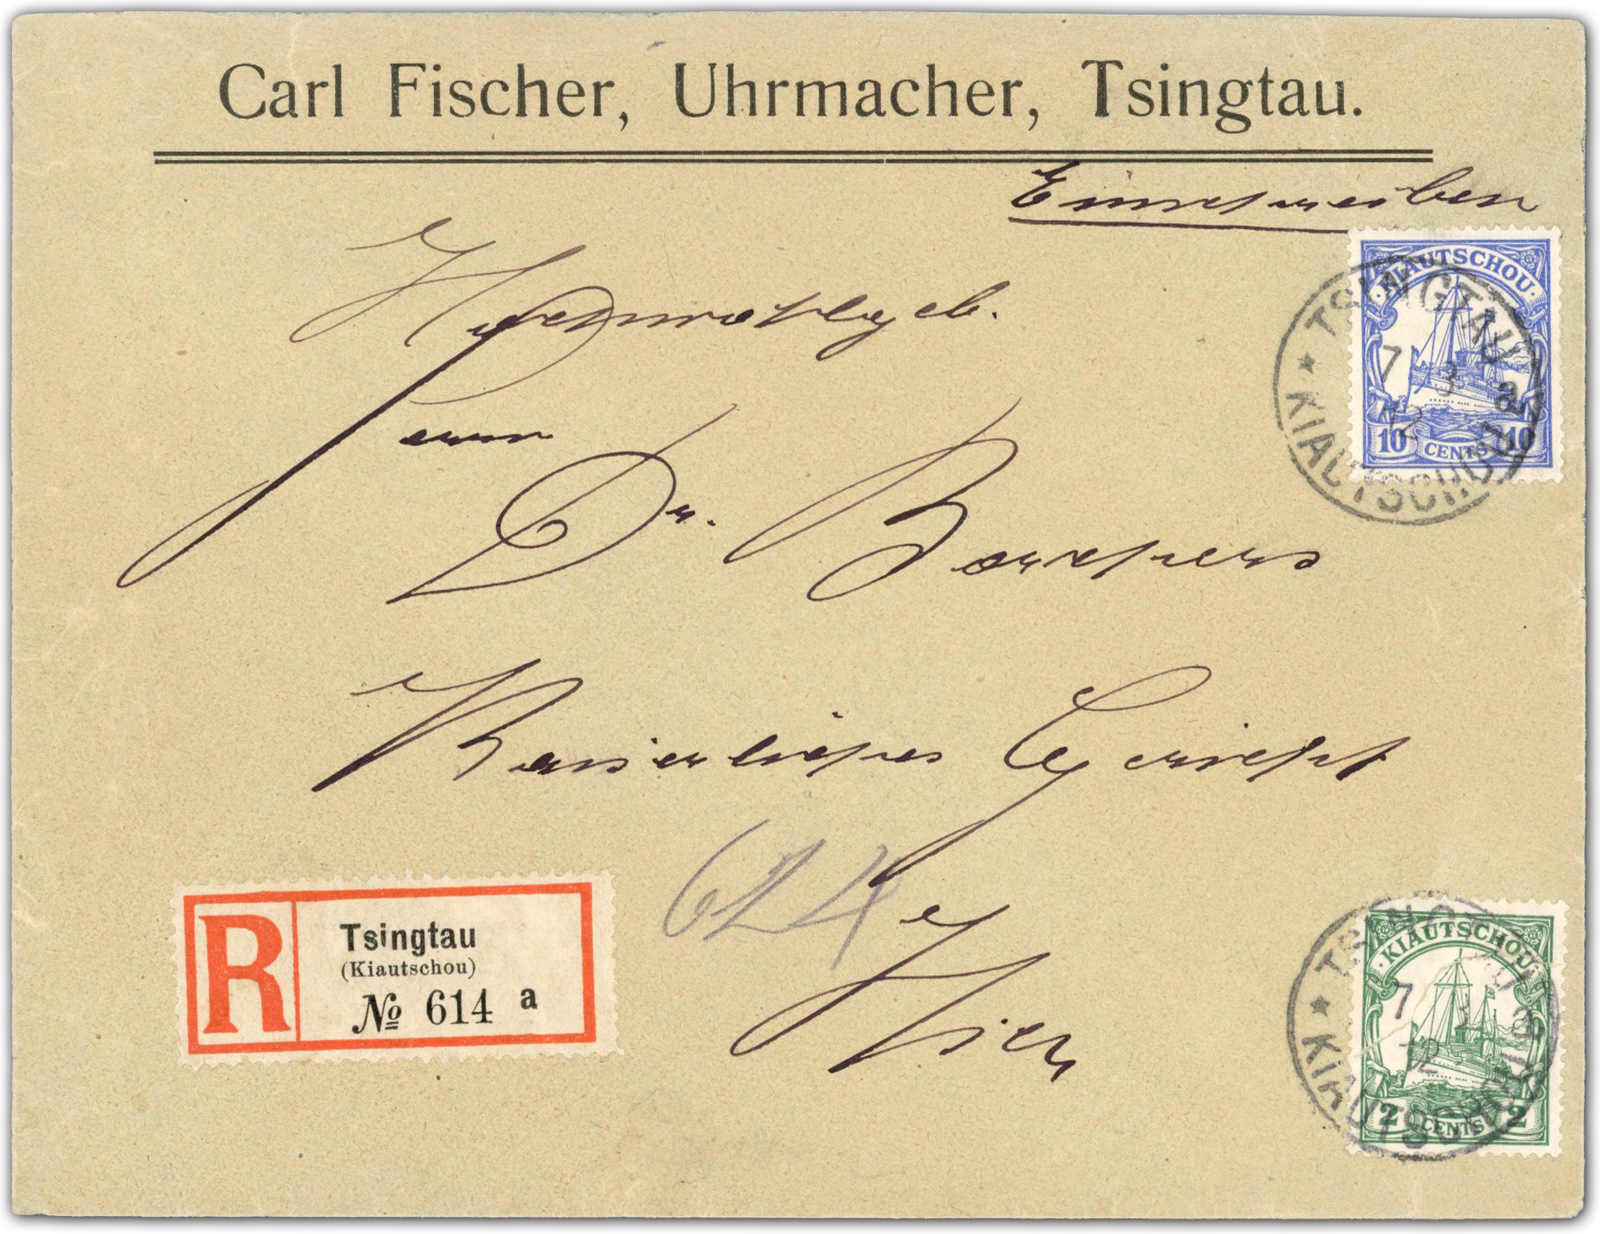 Carl Fischer, Uhrmacher, Tsingtau.
Einschreiben
Hochwohlgeb.
Herrn
Dr. Borchers
Kaiserliches Gericht
Hier
624
R
Tsingtau
(Kiautschou)
№ 614 a
KIAUTSCHOU
10 CENTS 10
TSINGTAU
7 3
12
a
★ KIAUTSCHOU ★
KIAUTSCHOU
2 CENTS 2
TSINGTAU
7 3
12
a
★ KIAUTSCHOU ★